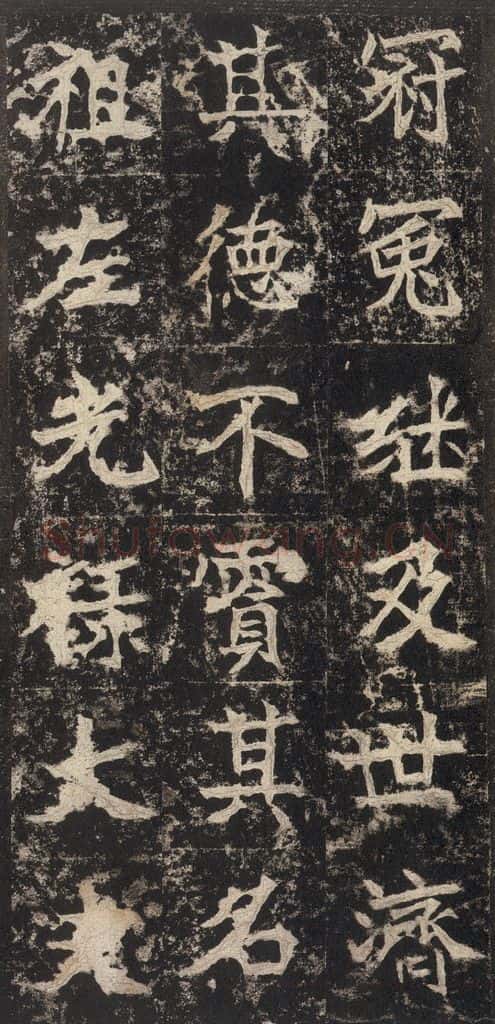 冠冕继及世濟
其德不霣其名
祖左光禄大夫
Shufawang.CN